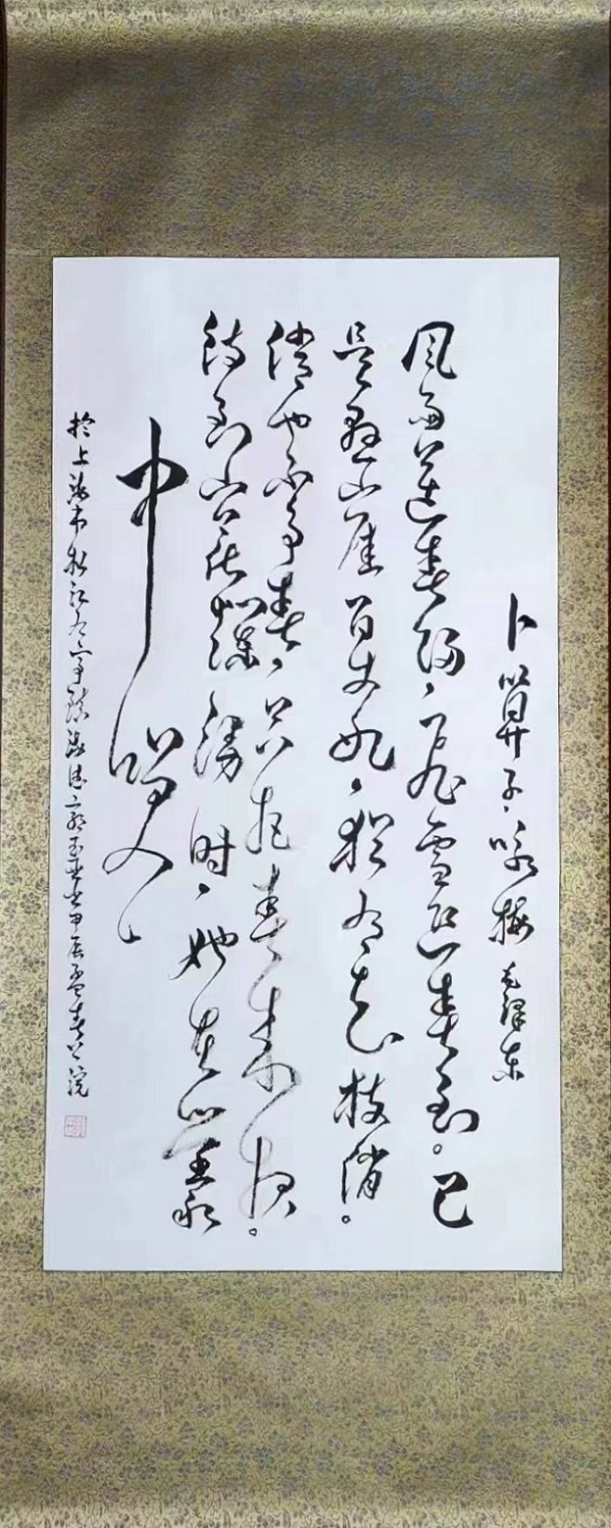 卜算子·咏梅 毛泽东
风雨送春归、飞雪迎春到。已
是悬崖百丈冰、犹有花枝俏。
俏也不争春、只把春来报。
待到山花烂漫时、她在丛
中笑
於上海市松江九亭镇 书甲辰孟春